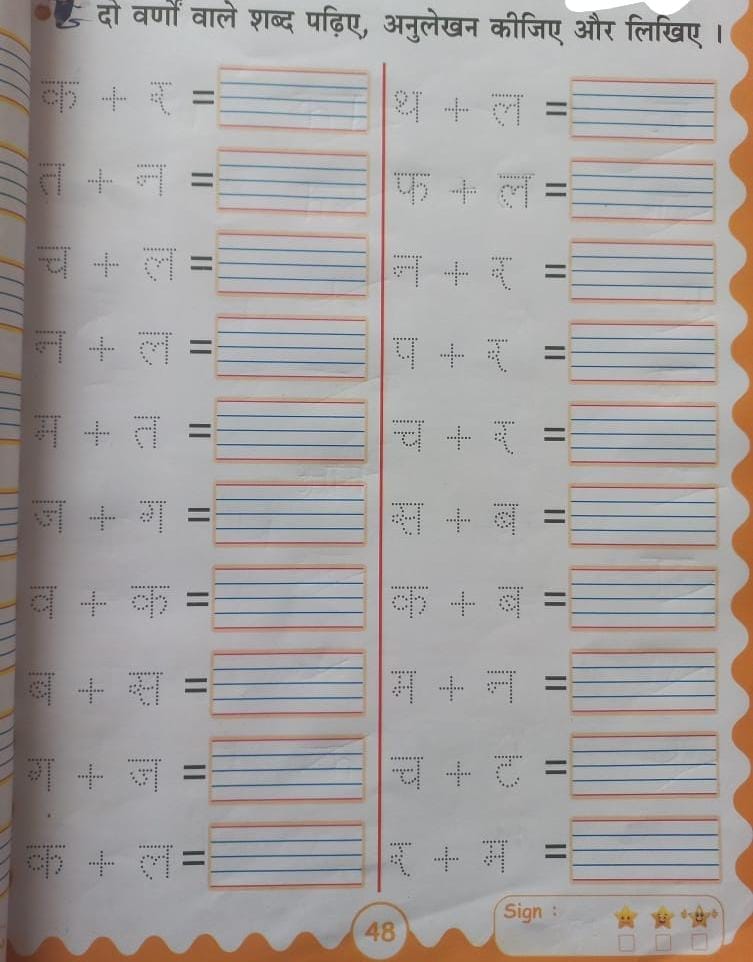 दो वर्णों वाले शब्द पढ़िए, अनुलेखन कीजिए और लिखिए ।
क + र =
त + न =
च + ल =
न + ल =
म + त =
ज + ग =
व + क =
ब + स =
ग + ज =
क + ल =
थ + ल =
फ + ल =
न + र =
प + र =
च + र =
स + ब =
क + ब =
म + न =
च + ट =
र + म =
48
Sign :